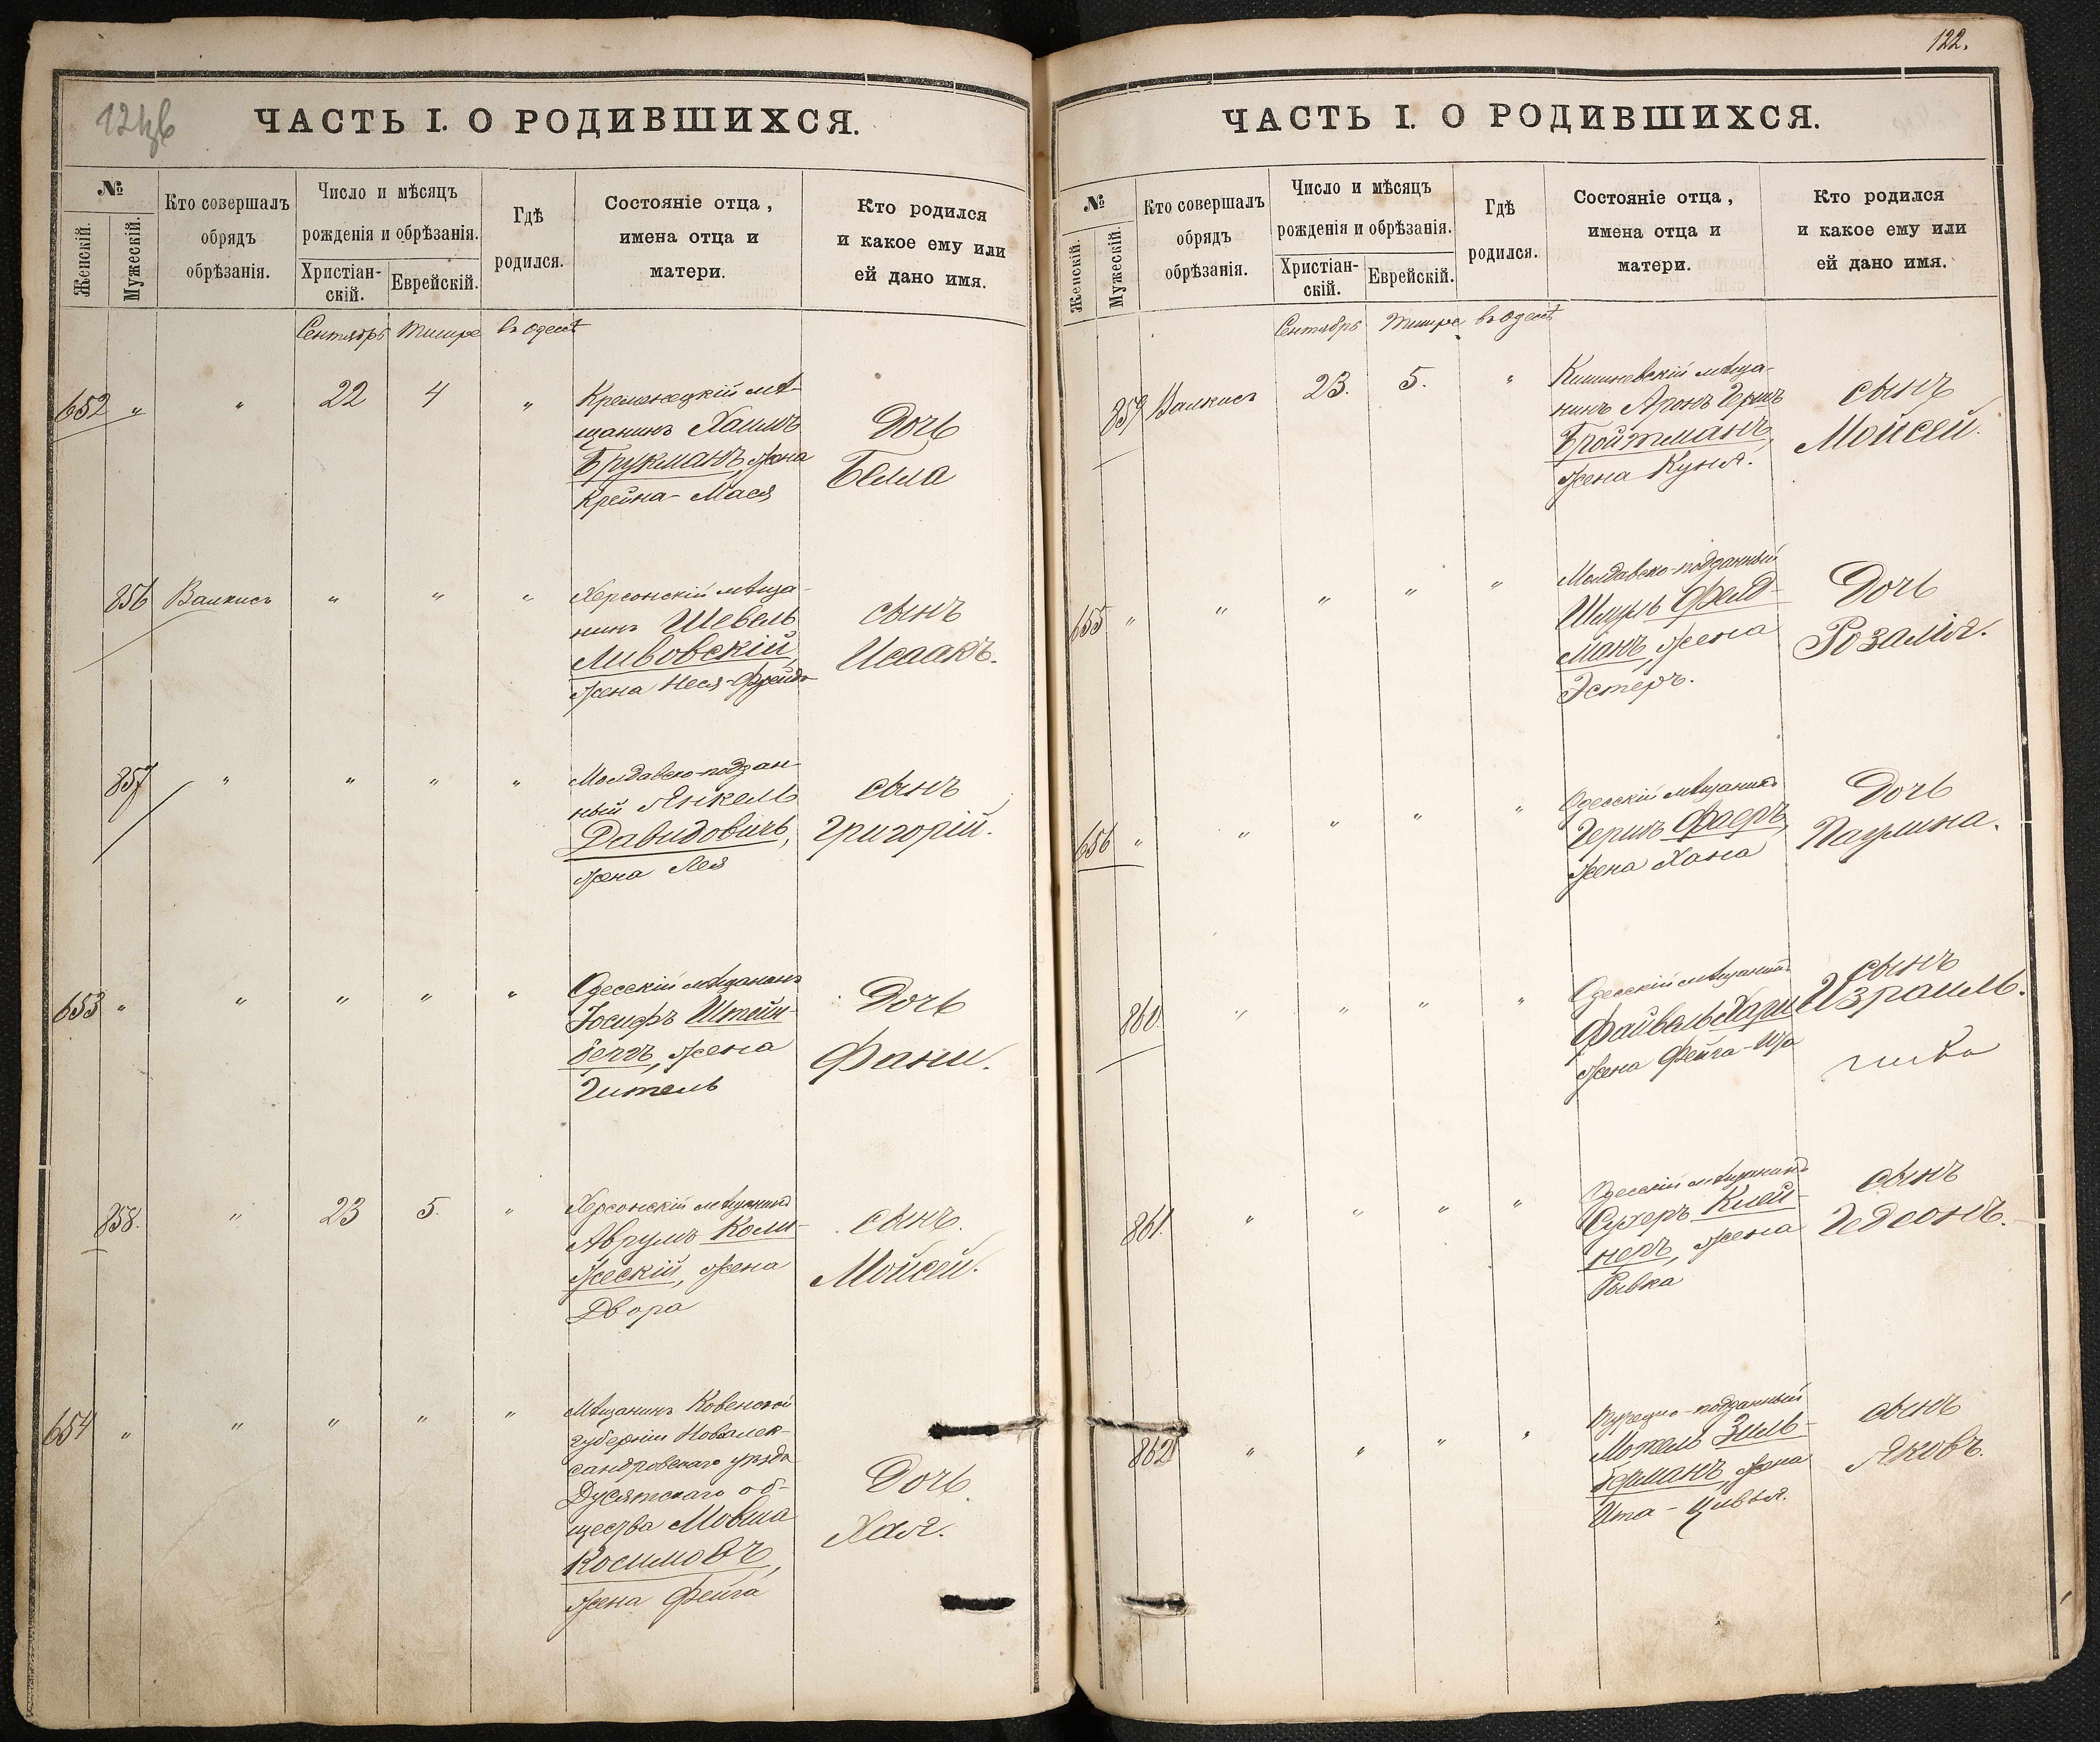 122.
ЧАСТЬ I. О РОДИВШИХСЯ.
№
Женскій.
Мужескій.
Кто совершалъ
обрядъ
обрѣзанія.
Число и мѣсяцъ
рожденія и обрѣзанія.
Христіан-
скій.
Еврейскій.
Гдѣ
родился.
Состояніе отца,
имена отца и
матери.
Кто родился
и какое ему или
ей дано имя.
Сентябрь Тишре въ Одессѣ
652 " " 22 4 "
Кременецкій мѣ-
щанинъ Хаимъ
Брукманъ, жена
Крейна-Мася
Дочь
Белла
856 Валкисъ " " "
Херсонскій мѣща-
нинъ Шевель
Ливовскій,
жена Неся-Фрейда
сынъ
Исаакъ.
857 " " " "
Молдавско-поддан-
ный Янкель
Давидовичъ,
жена Лея
сынъ
Григорій.
653 " " " " "
Одесскій мѣщанинъ
Іосифъ Штейн-
бергъ, жена
Гитель
Дочь
Фани.
858. " 23 5. "
Херсонскій мѣщанинъ
Аврумъ Коли-
жескій, жена
Двора
сынъ.
Мойсей.
654 " " " " "
Мѣщанинъ Ковенской
губерніи Новалек-
сандровскаго уѣзда
Дусятскаго об-
щества Мовша
Косимовъ,
жена Фейга
Дочь
Хая.
ЧАСТЬ I. О РОДИВШИХСЯ.
№
Женскій.
Мужескій.
Кто совершалъ
обрядъ
обрѣзанія.
Число и мѣсяцъ
рожденія и обрѣзанія.
Христіан-
скій.
Еврейскій.
Гдѣ
родился.
Состояніе отца,
имена отца и
матери.
Кто родился
и какое ему или
ей дано имя.
Сентябрь Тишре въ Одессѣ
859 Валкисъ 23. 5. "
Кишиневскій мѣща-
нинъ Аронъ Гершъ
Бройтманъ,
жена Куня.
сынъ
Мойсей.
655 " " " " "
Молдавско-подданный
Шмуль Фелд-
манъ, жена
Эстеръ.
Дочь
Розалія.
656 " " " " "
Одесскій мѣщанинъ
Гершъ Фаеръ,
жена Хана
Дочь
Паулина.
860. " " " "
Одесскій мѣщанинъ
Файвель Хари
жена Фейга-
сынъ
Израиль.
861. " " " "
Одесскій мѣщанинъ
Сухеръ Клей-
неръ, жена
Рывка
сынъ
Гедеонъ.
862 " " " "
Турецко-подданный
Мотель Зиль-
берманъ, жена
Ита-Цивья.
сынъ
Яковъ.